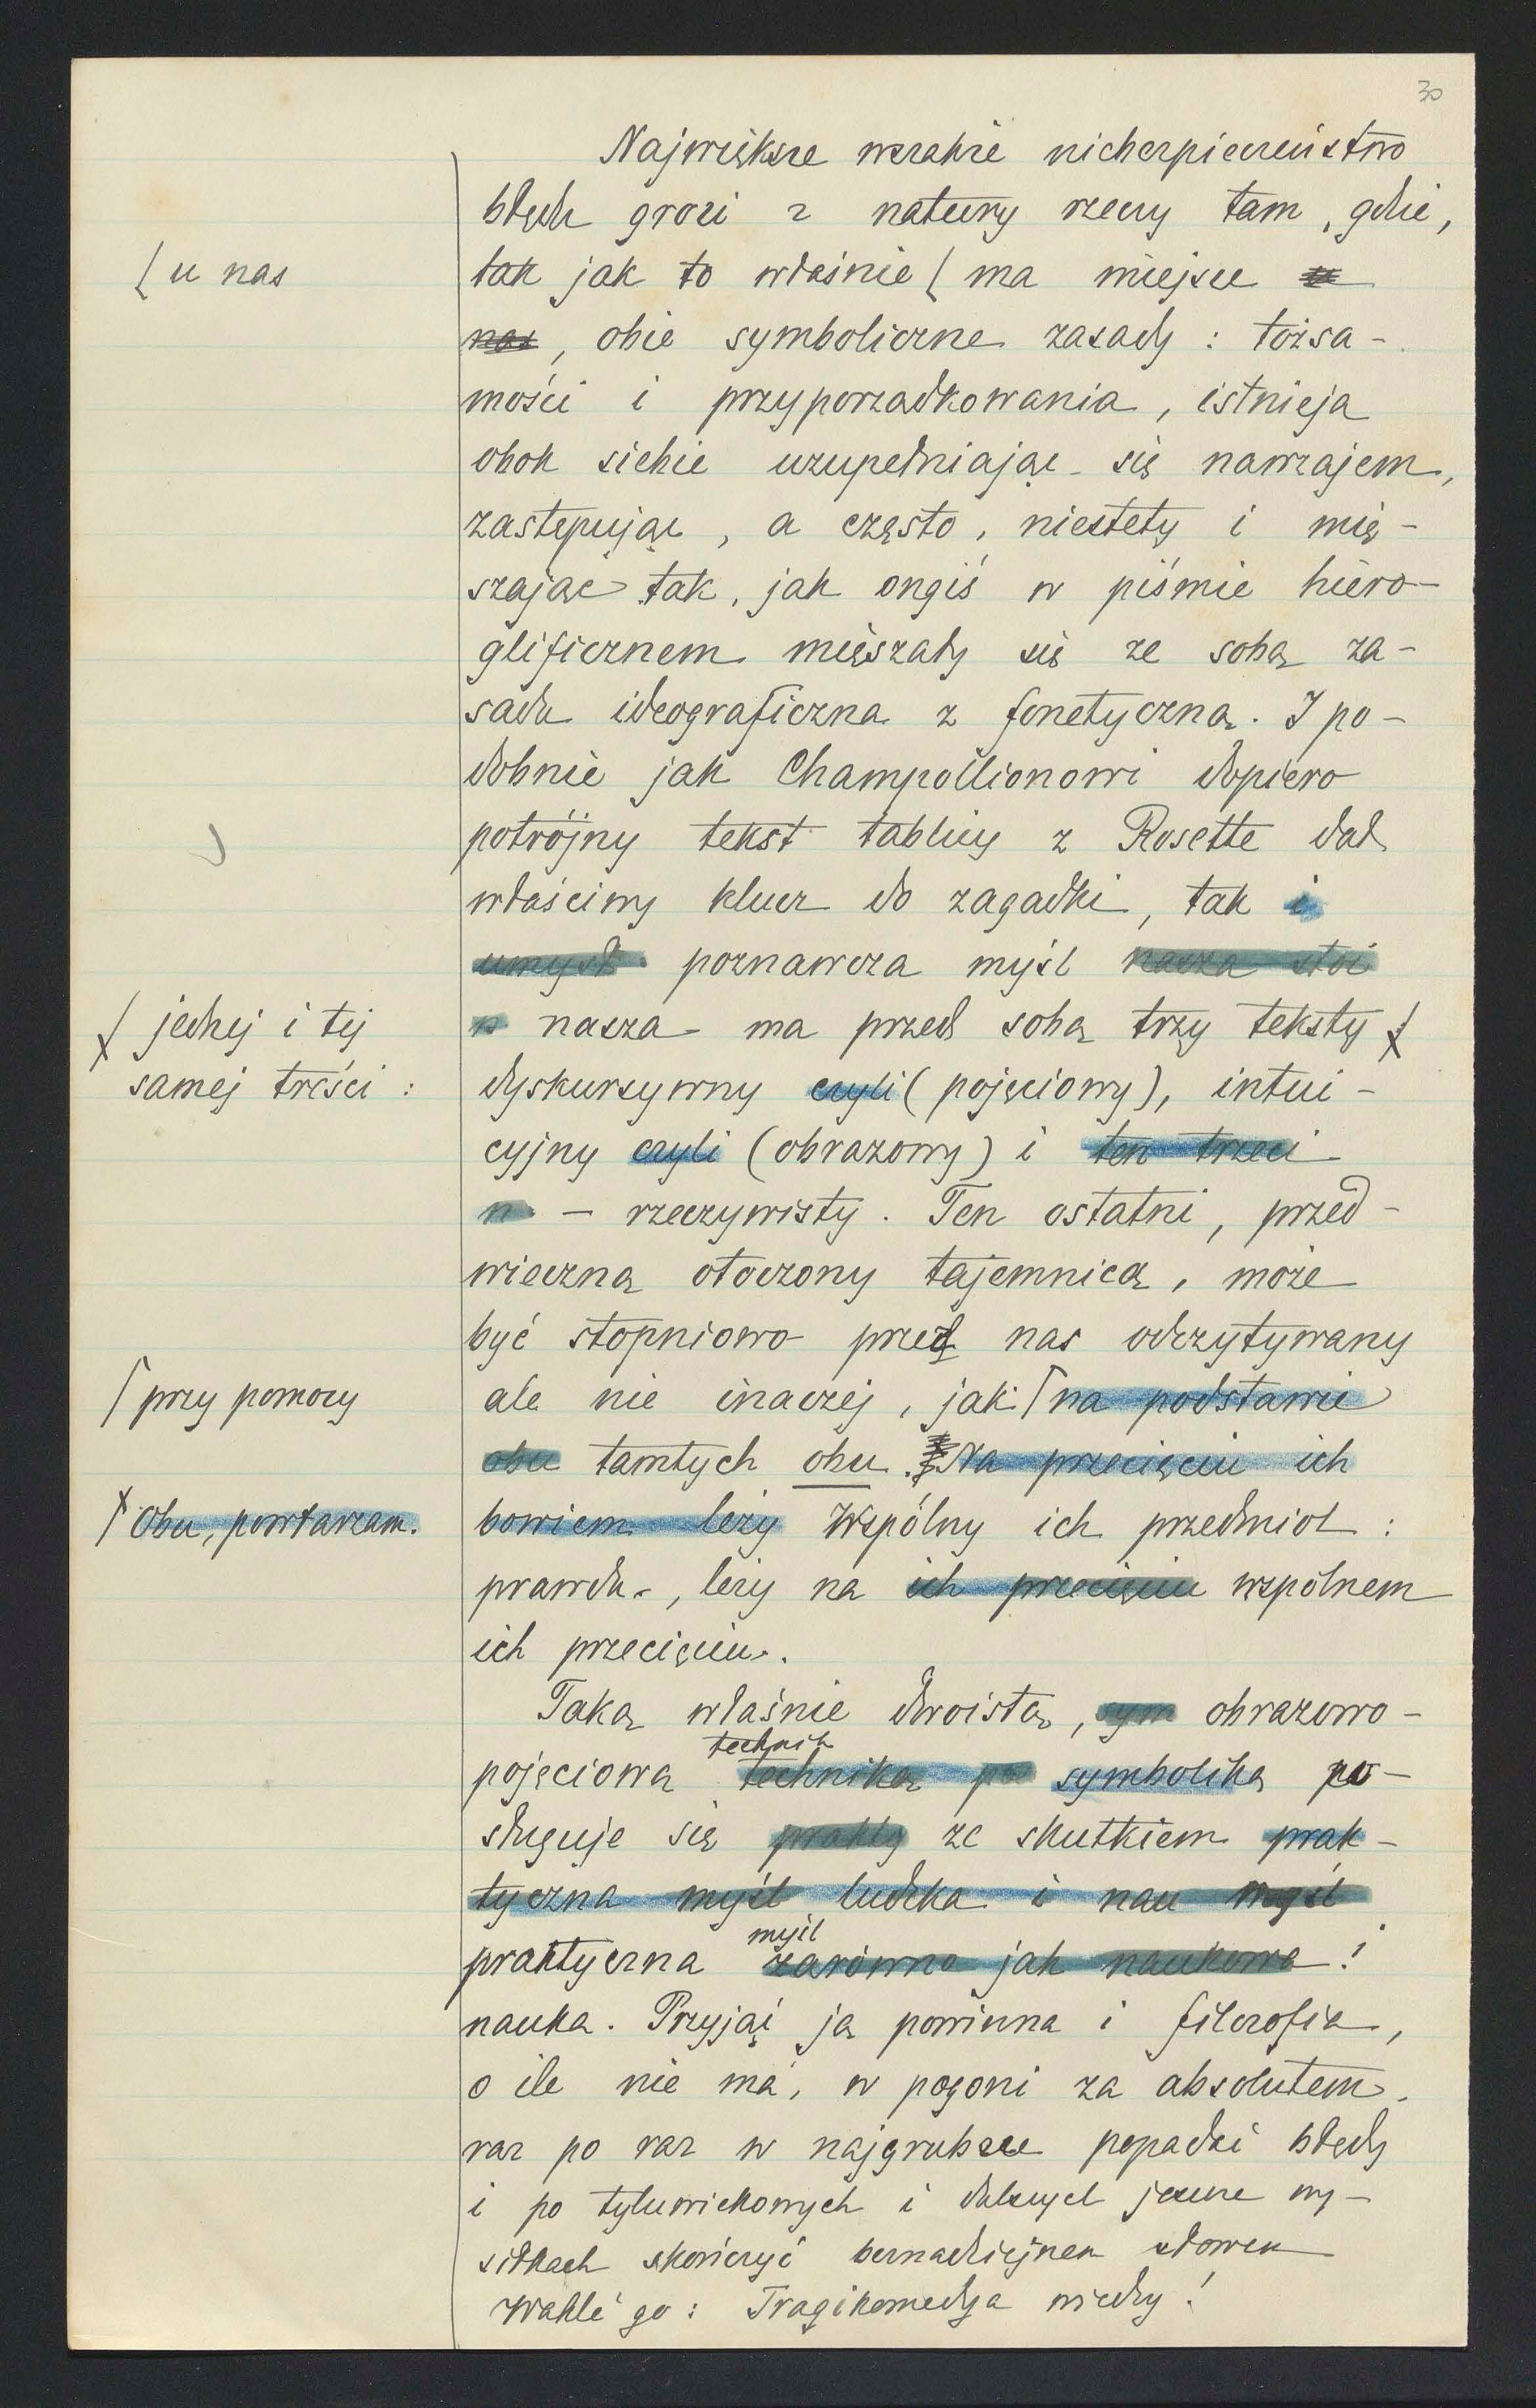 30
Największe wszakże niebezpieczeństwo
błędu grozi z natury rzeczy tam, gdzie,
{ u nas
tak jak to właśnie { ma miejsce u
nas, obie symboliczne zasady: tożsa-
mości i przyporządkowania, istnieją
obok siebie uzupełniając się nawzajem,
zastępując, a często, niestety i mię-
szając tak, jak ongiś w piśmie hiero-
glificznem mięszały się ze sobą za-
sada ideograficzna z fonetyczną. I po-
dobnie jak Champollionowi dopiero
potrójny tekst tablicy z Rosette dał
właściwy klucz do zagadki, tak i
umysł poznawcza myśl nasza stoi
nasza ma przed sobą trzy teksty
jednej i tej
samej treści:
dyskursywny czyli (pojęciowy), intui-
cyjny czyli (obrazowy) i ten trzeci
n - rzeczywisty. Ten ostatni, przed-
wieczną otoczony tajemnicą, może
być stopniowo przez nas odczytywany
ale nie inaczej, jak na podstawie
przy pomocy
obu tamtych obu. Na przecięciu ich
Obu, powtarzam.
bowiem leży Wspólny ich przedmiot:
prawda, leży na ich przecięciu wspólnem
ich przecięciu.
Taką właśnie dwoistą, sym obrazowo-
technik
pojęciową techniką po symboliką po-
sługuje się prakty ze skutkiem prak-
tyczna myśl ludzka i nau myśl
myśl
praktyczna zarówno jak naukowa i
nauka. Przyjąć ją powinna i filozofia,
o ile nie ma, w pogoni za absolutem,
raz po raz w najgrubsze popadać błędy
i po tyluwiekowych i dalszych jeszcze wy-
siłkach skończyć beznadziejnem słowem
Wahle'go: Tragikomedya wiedzy!